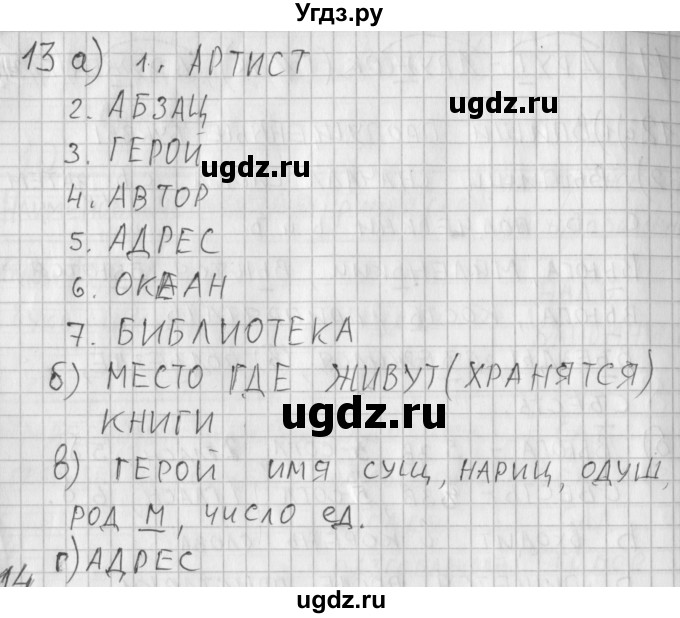 Угдз.ру
13 а) 1. АРТИСТ
2. АБЗАЦ
ugdz.ru
3. ГЕРОЙ
ugdz.ru
4. АВТОР
5. АДРЕС
6. ОКЕАН
7. БИБЛИОТЕКА
б) МЕСТО ГДЕ ЖИВУТ (ХРАНЯТСЯ)
КНИГИ
ugdz.ru
в) ГЕРОЙ ИМЯ СУЩ, НАРИЦ, ОДУШ,
РОД М, ЧИСЛО ЕД.
г) АДРЕС
14
ugdz.ru